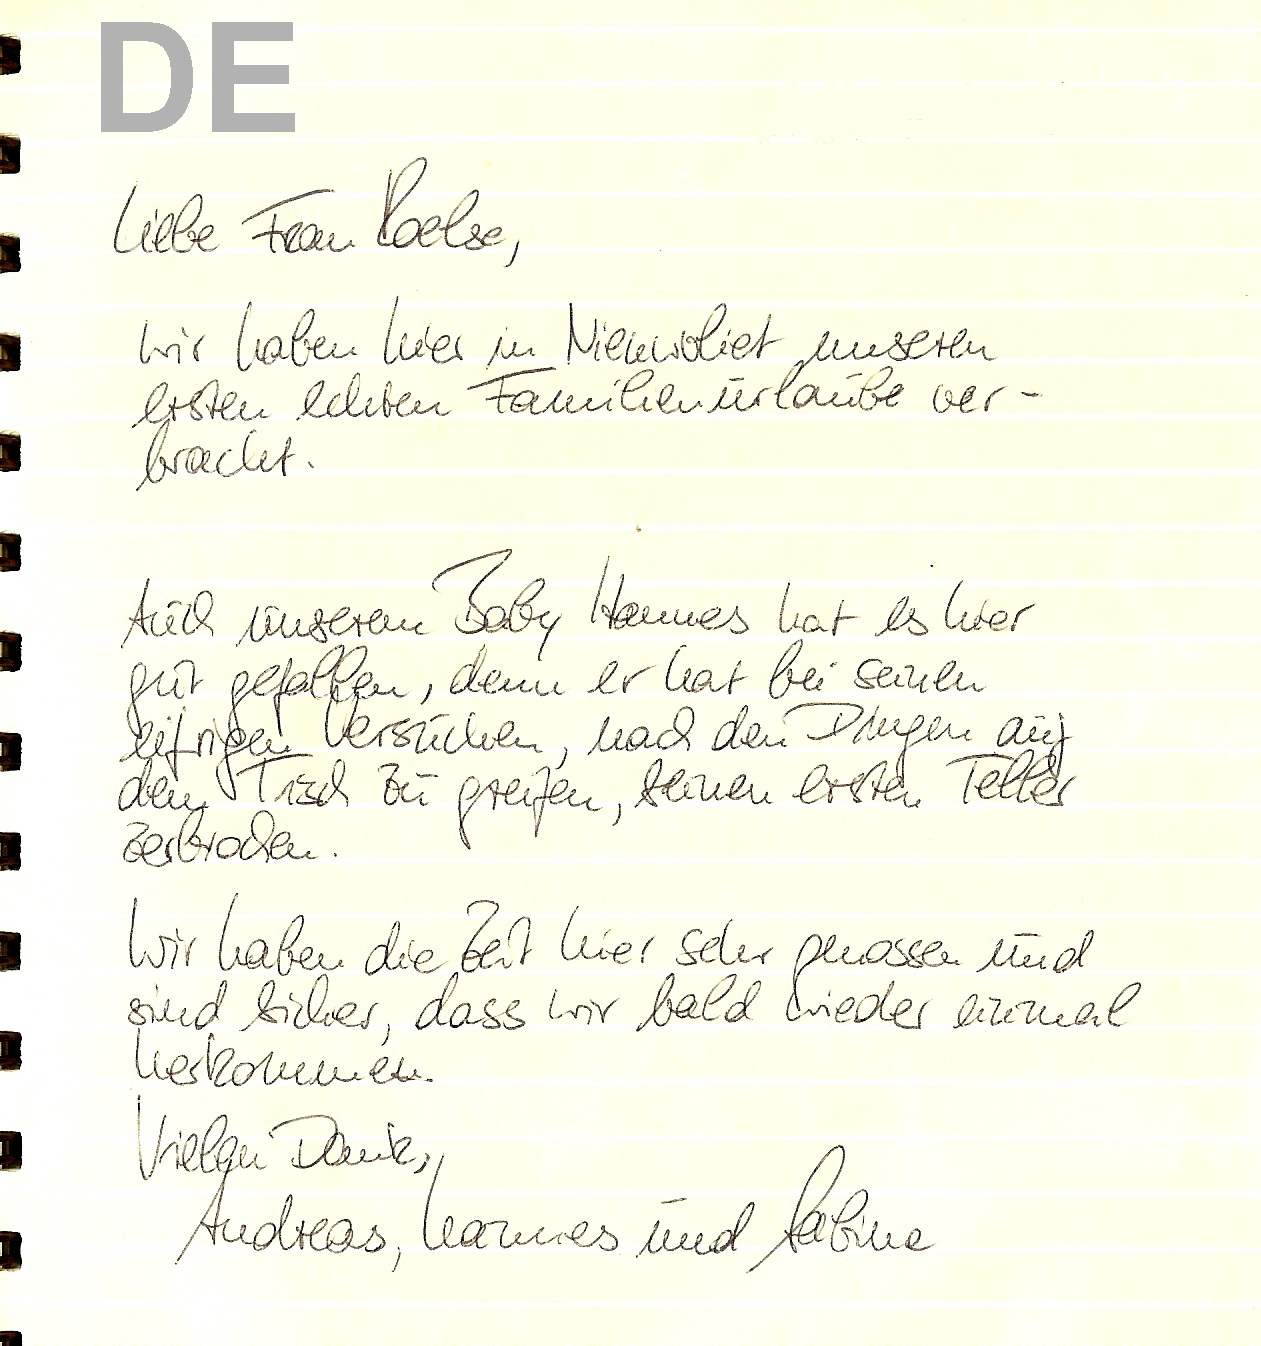 DE
Liebe Frau Roelse,
wir haben hier in Nieuwvliet unseren
ersten echten Familienurlaube ver-
bracht.
Auch unserem Baby Hannes hat es hier
gut gefallen, denn er hat bei seinen
eifrigen Versuchen, nach den Dingen auf
dem Tisch zu greifen, seinen ersten Teller
zerbrochen.
Wir haben die Zeit hier sehr genossen und
sind sicher, dass wir bald wieder einmal
herkommen.
Vielen Dank,
Andreas, Hannes und Sabine